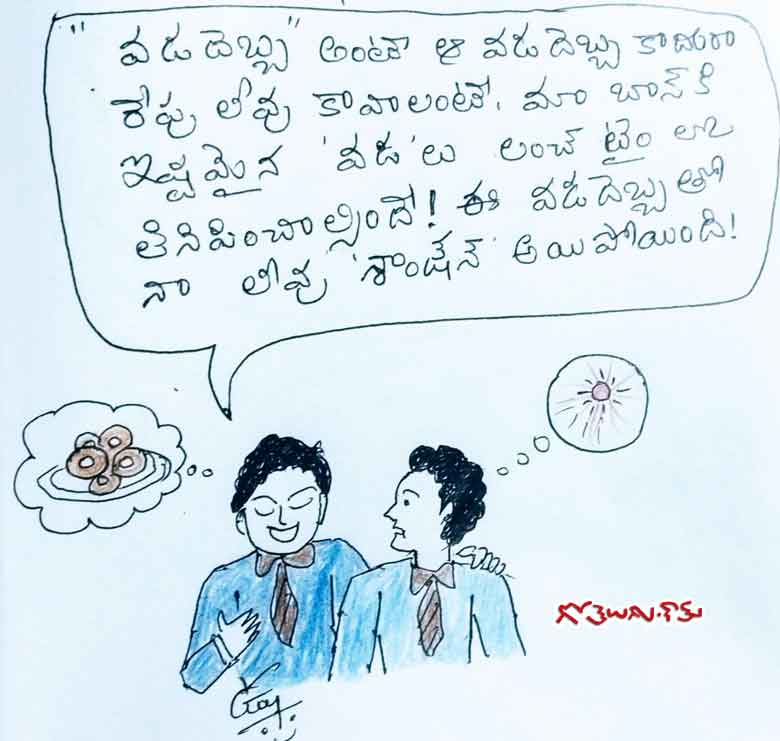 "వడదెబ్బ" అంటే ఆ వడదెబ్బ కాదురా
రేపు లీవు కావాలంటే, మా బాస్ కి
ఇష్టమైన 'వడ'లు లంచ్ టైం లో
తినిపించాల్సిందే! ఈ వడదెబ్బ తో
నా లీవు 'శాంక్షన్' అయిపోయింది!
గోతెలుగు.కామ్